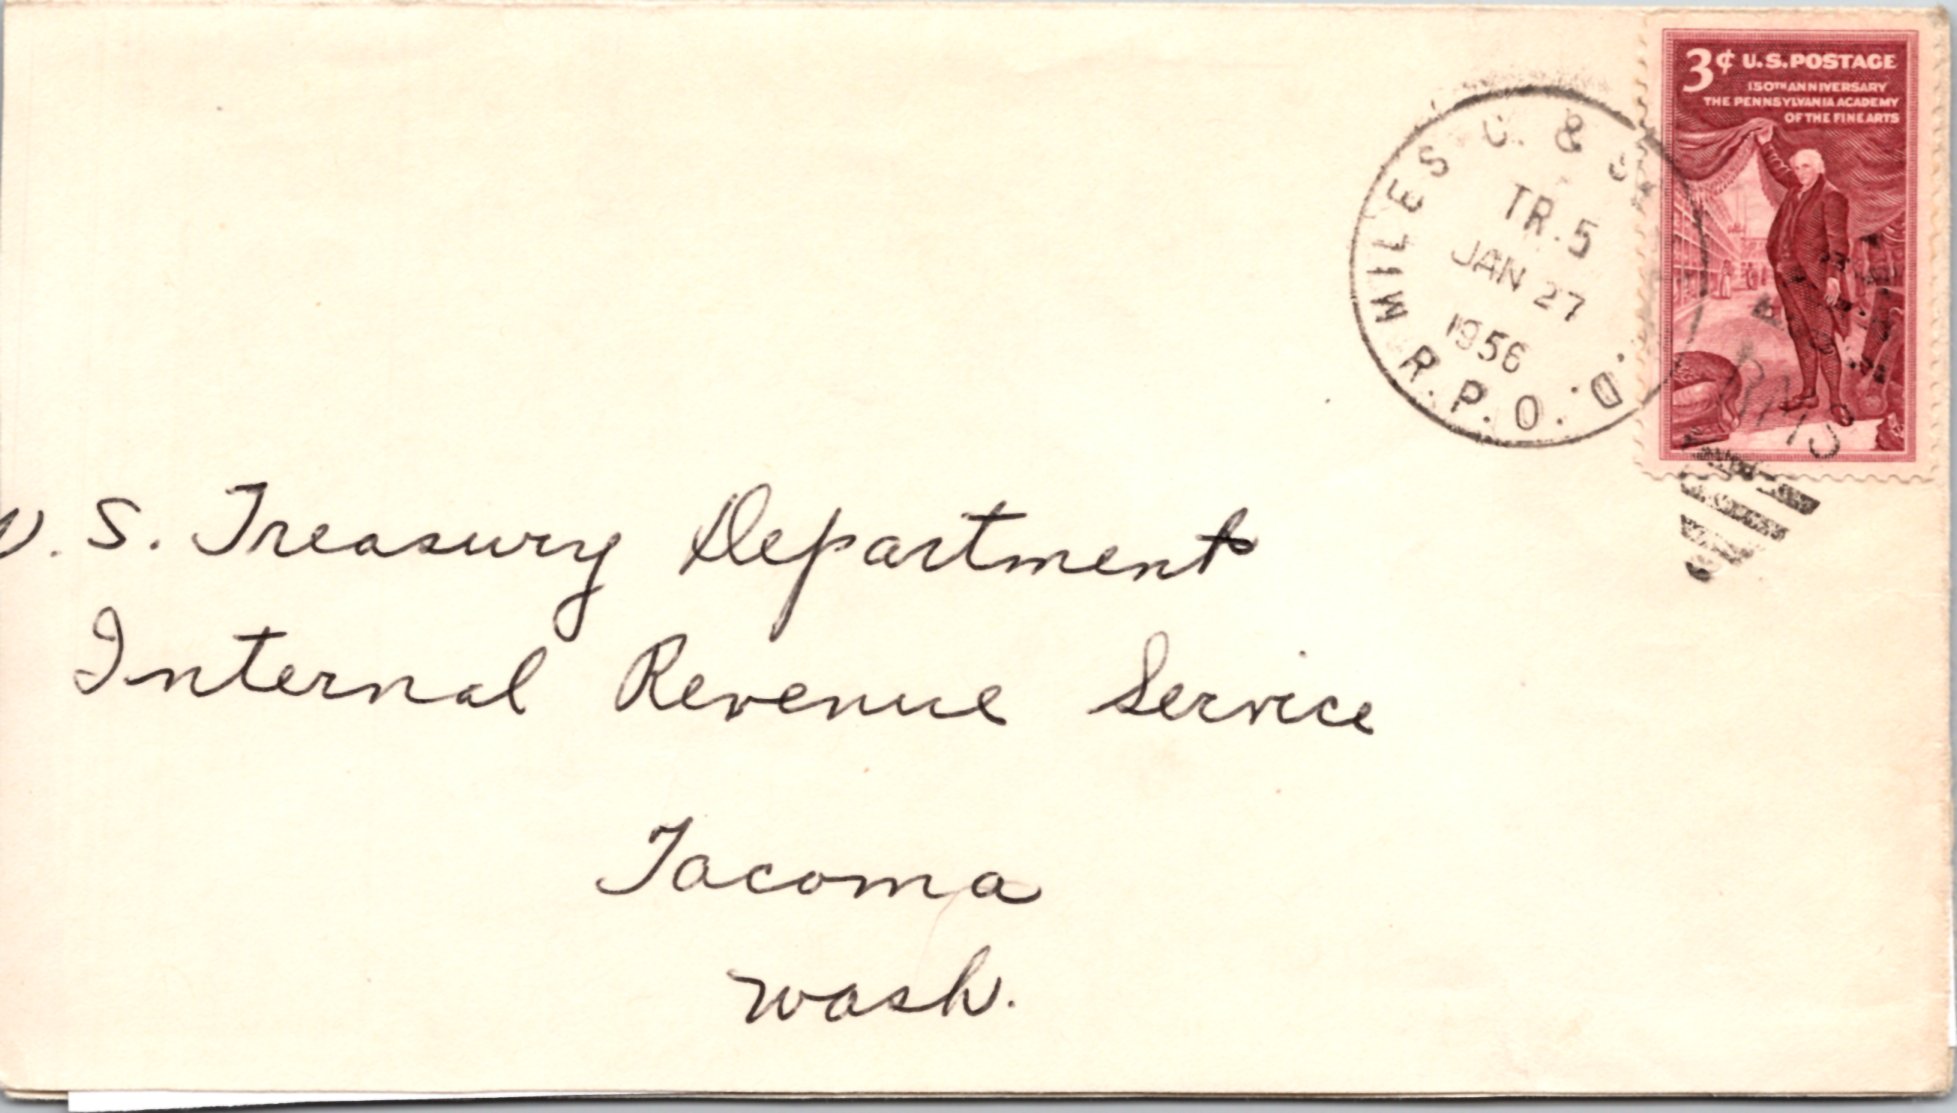 3¢ U.S. POSTAGE
150TH ANNIVERSARY
THE PENNSYLVANIA ACADEMY
OF THE FINE ARTS
MILES C. &
TR. 5
JAN 27
1956
R.P.O.
U. S. Treasury Department
Internal Revenue Service
Tacoma
Wash.